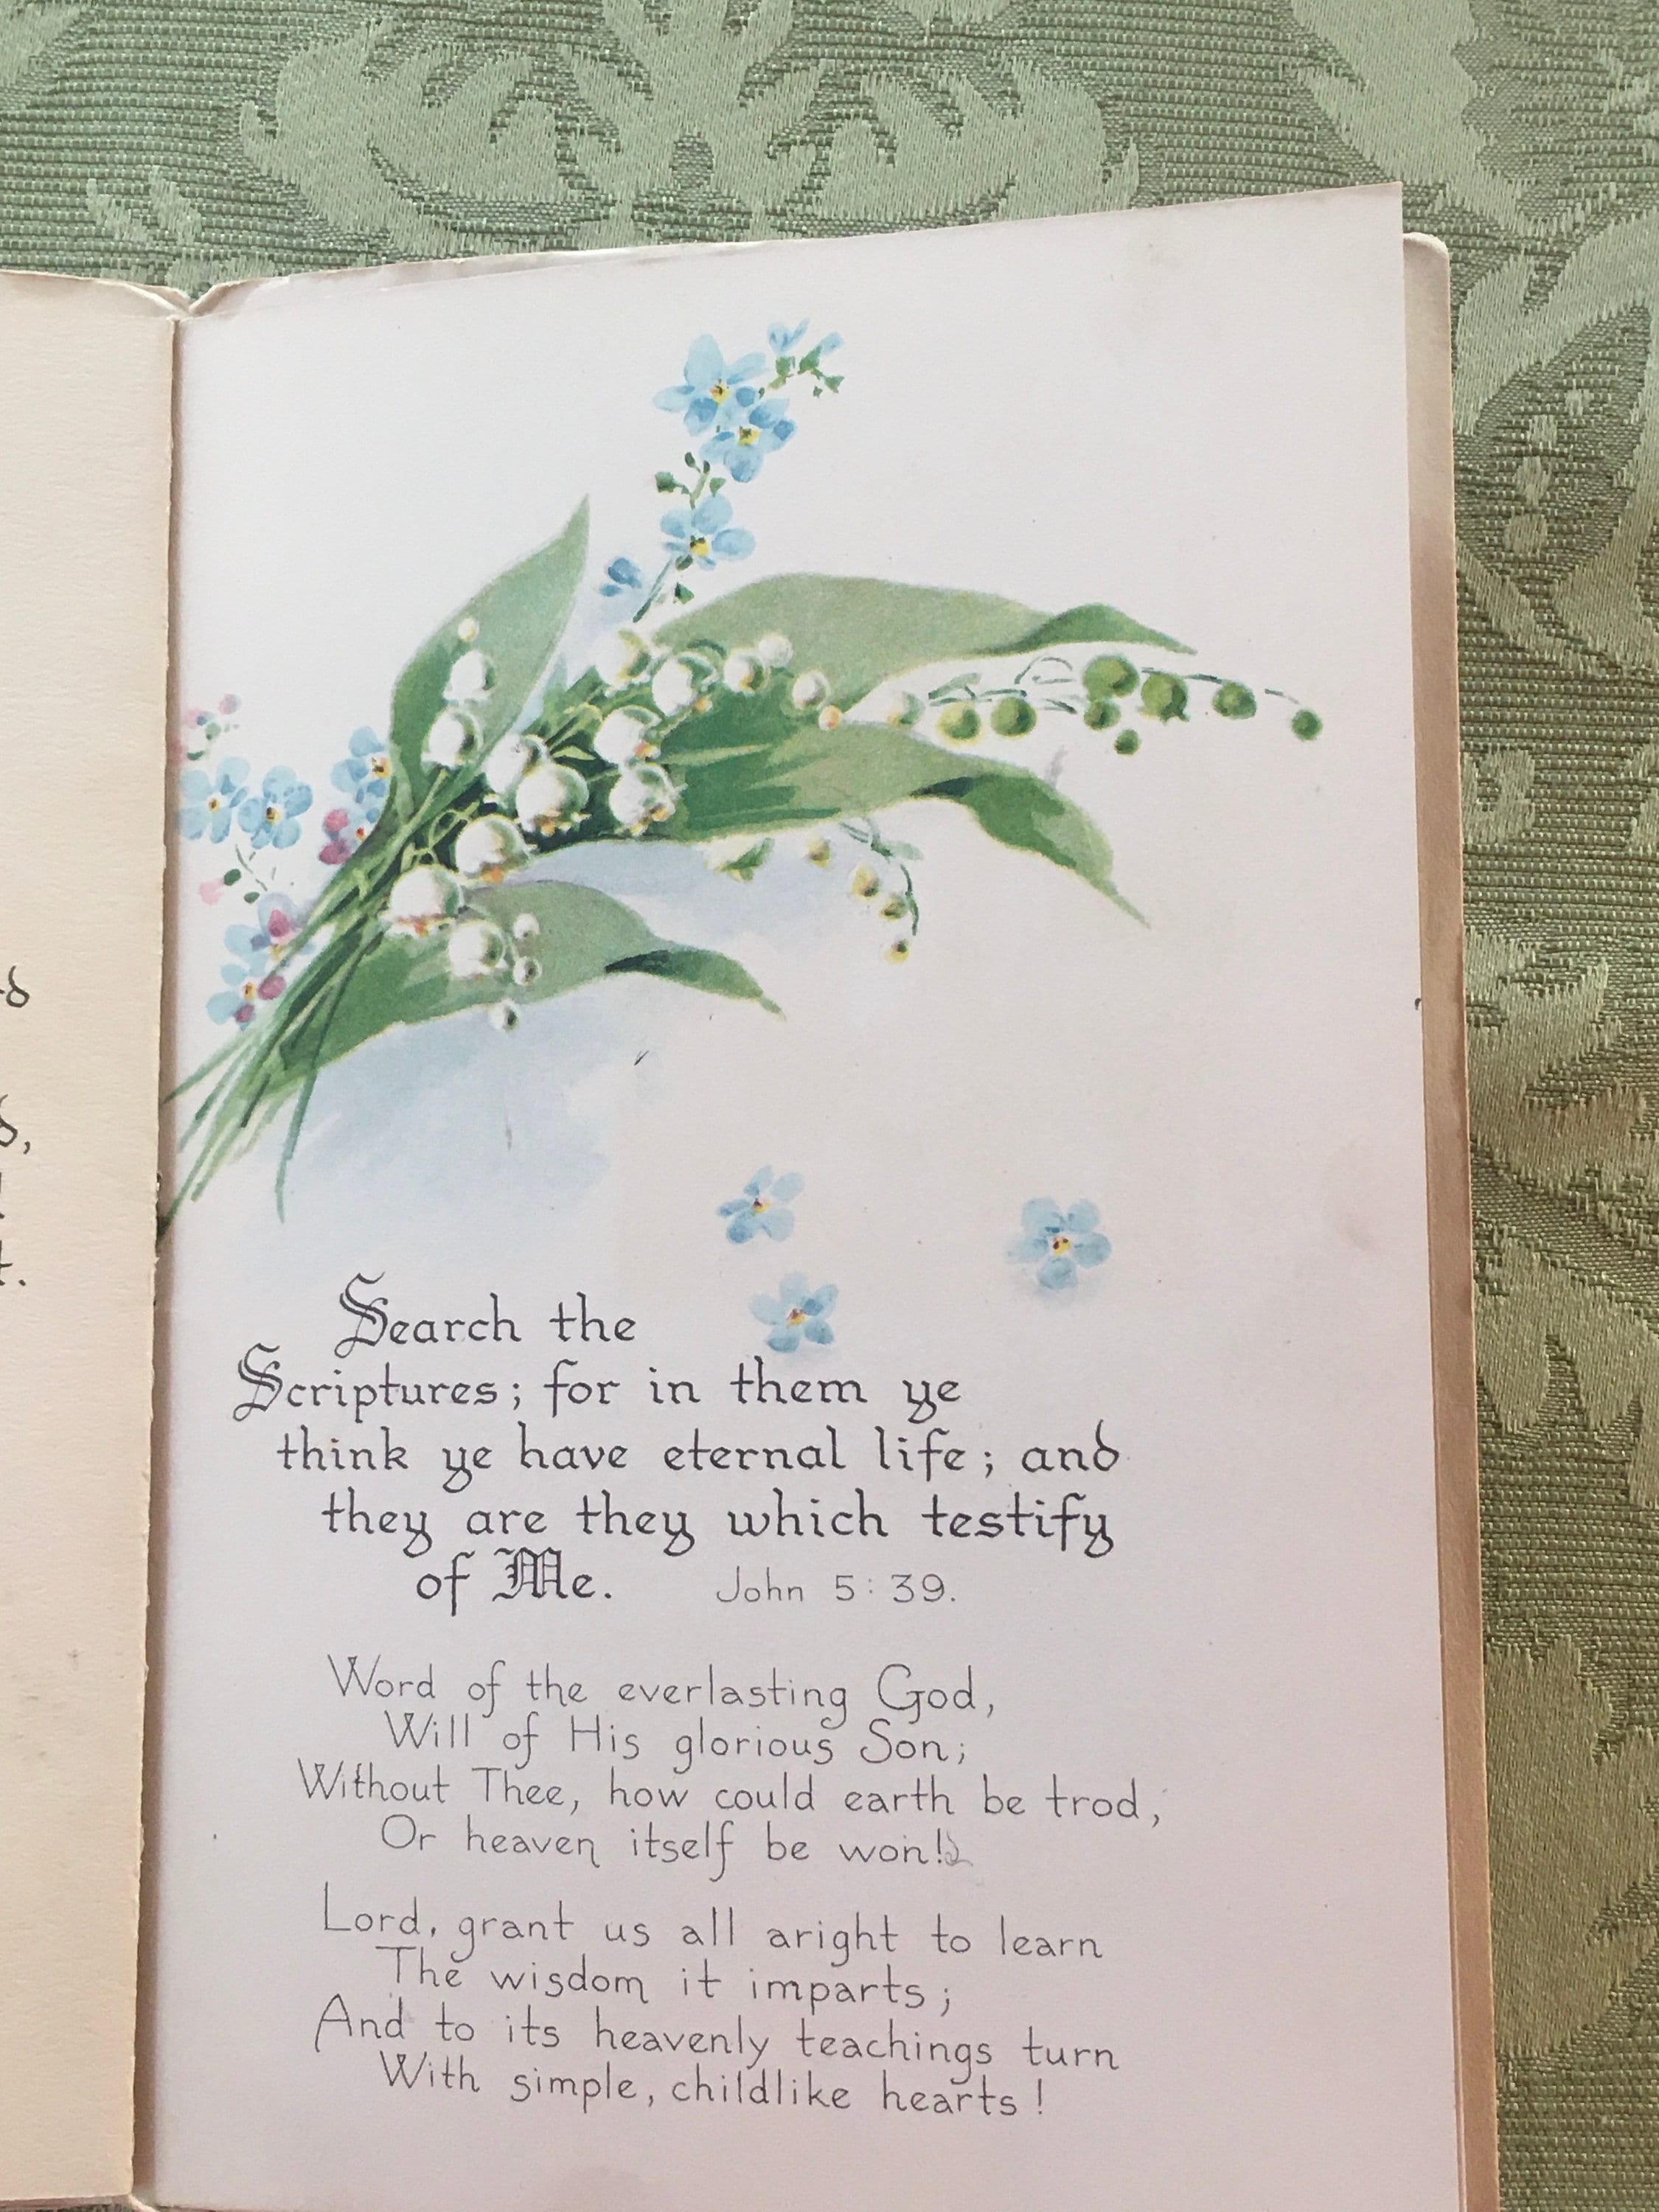 Search the
Scriptures; for in them ye
think ye have eternal life; and
they are they which testify
of Me. John 5:39.
Word of the everlasting God,
Will of His glorious Son;
Without Thee, how could earth be trod,
Or heaven itself be won!
Lord, grant us all aright to learn
The wisdom it imparts;
And to its heavenly teachings turn
With simple, childlike hearts!